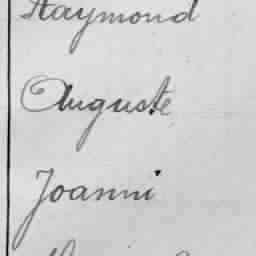 Raymond
Auguste
Joanni